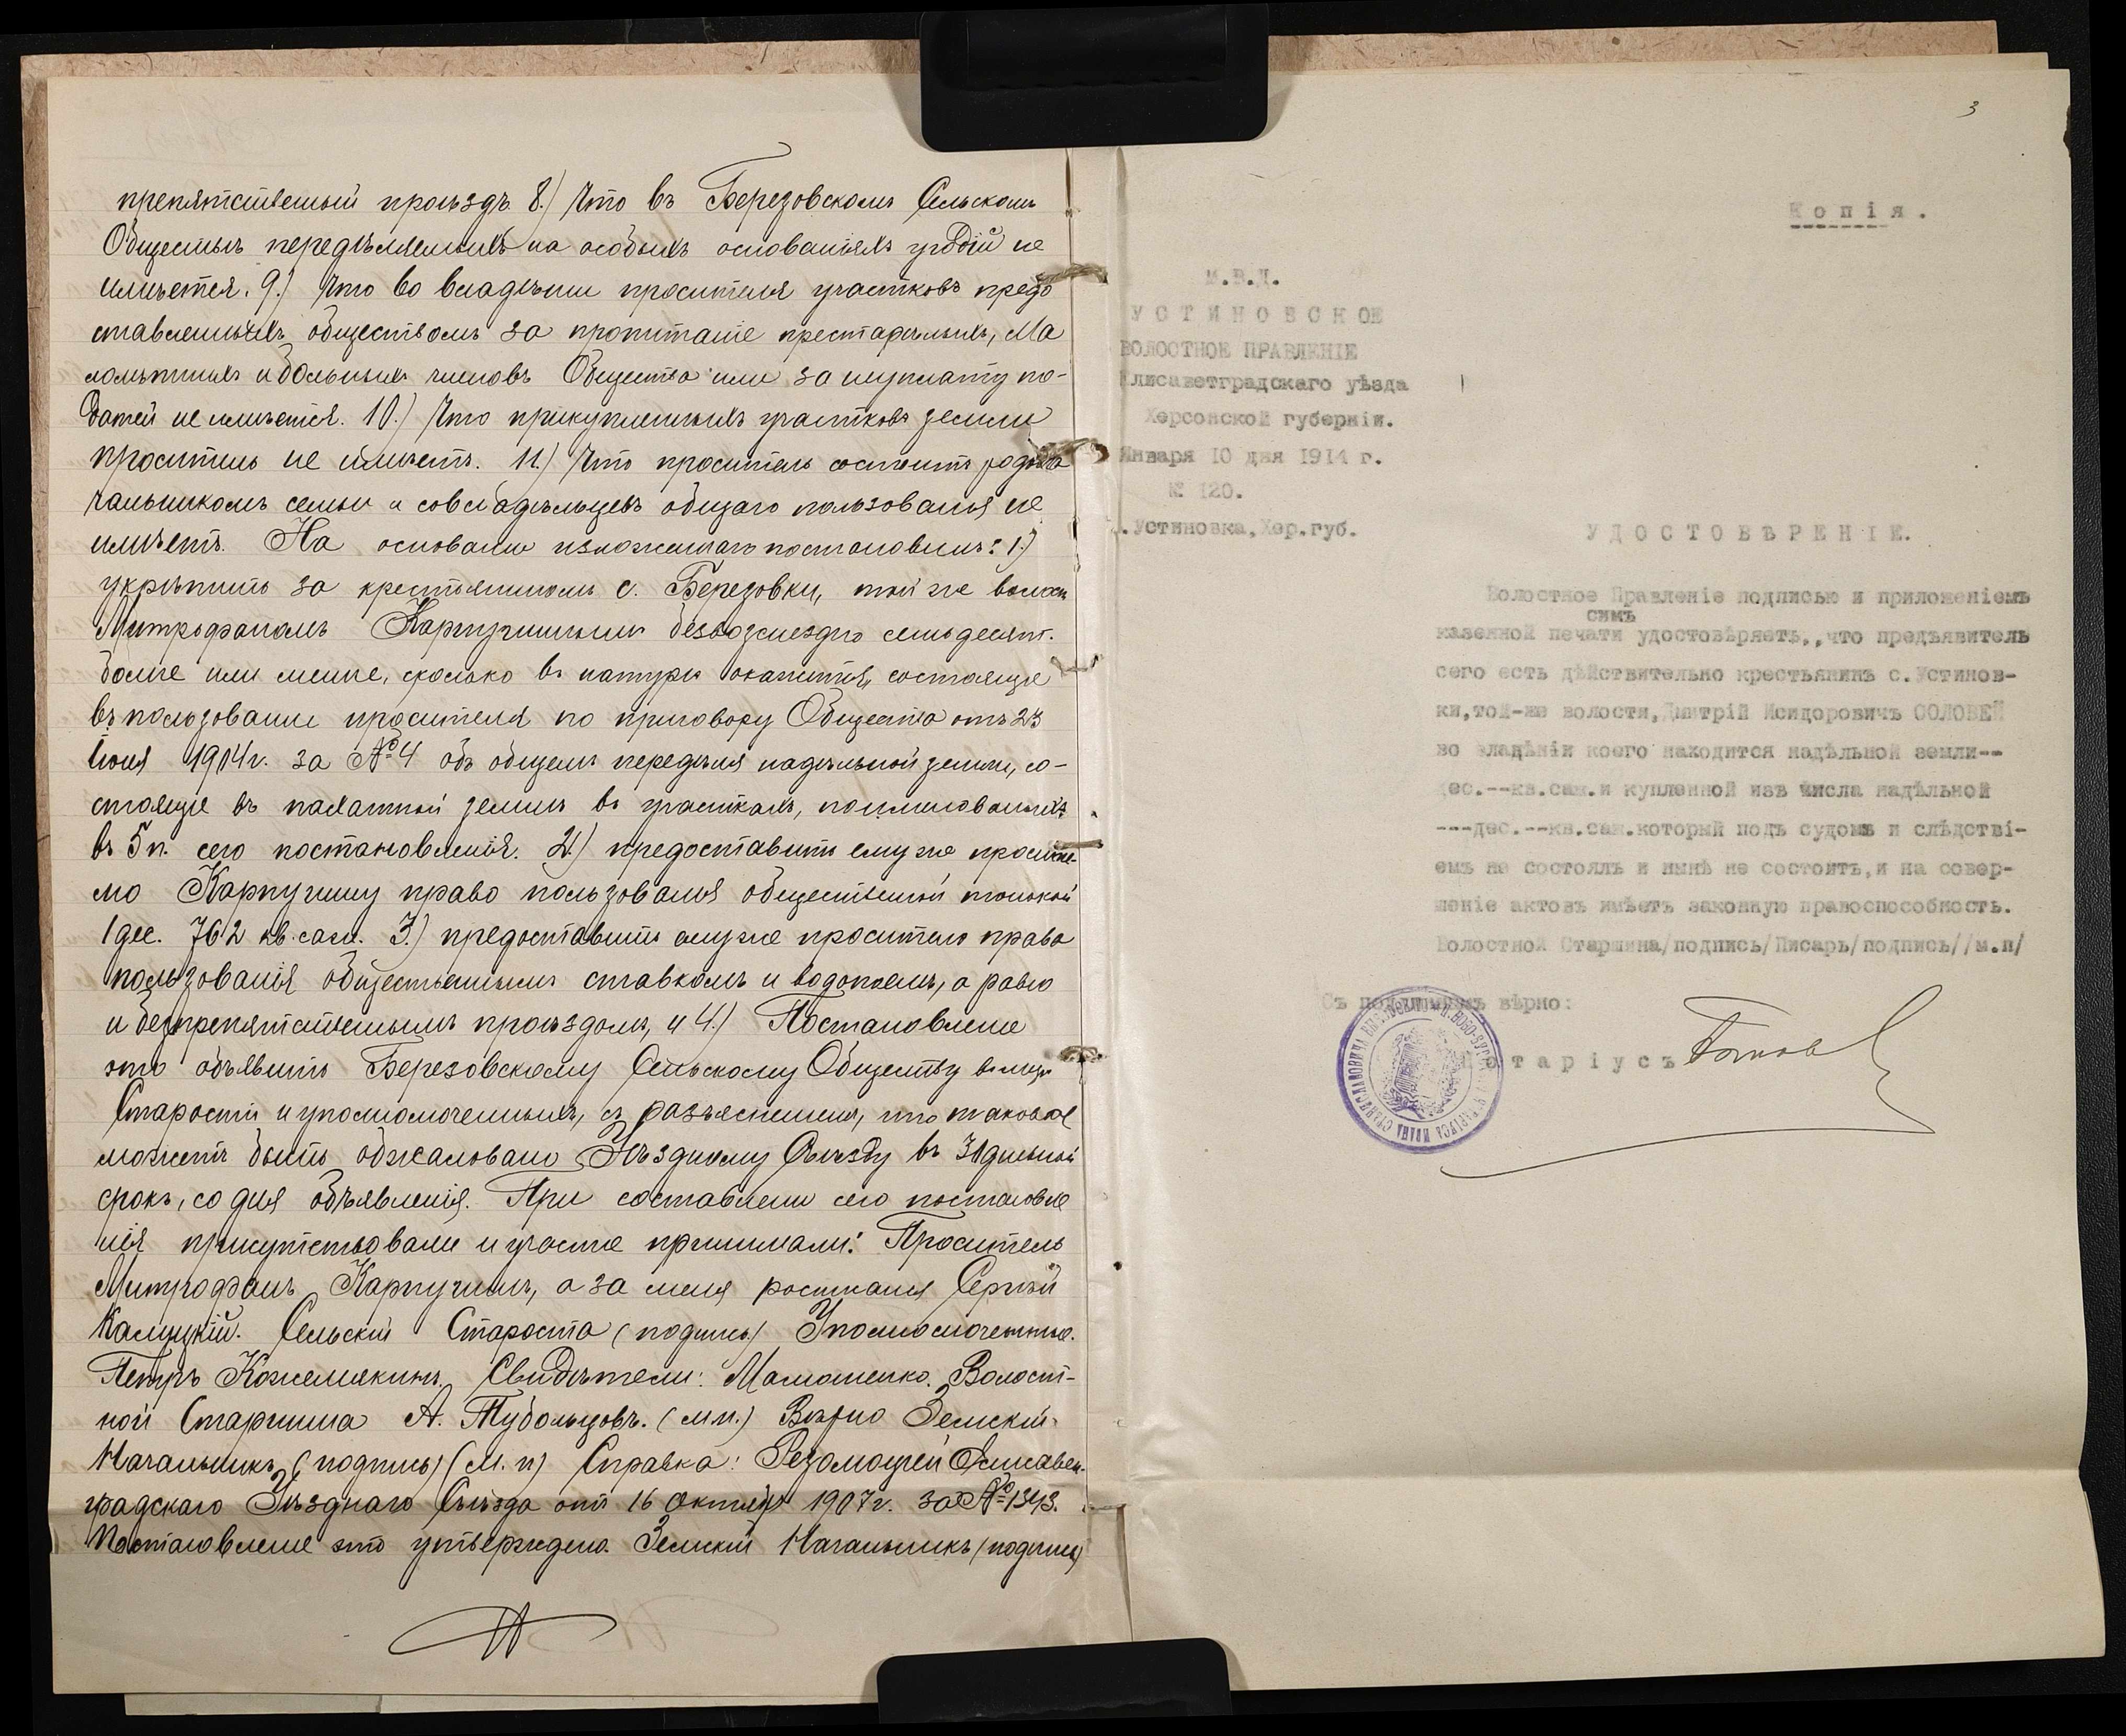 препятственый проѣздъ. 8.) Что въ Березовскомъ Сельскомъ
Обществѣ передѣляемыхъ на особыхъ основаніяхъ угодій не
имѣется. 9.) Что во владѣніи просителя участковъ предо
ставленныхъ обществомъ за пропитаніе престарѣлыхъ, ма
лолѣтнихъ и больныхъ членовъ Общества или за неуплату по-
датей не имѣется. 10.) Что прикупленныхъ участковъ земли
проситель не имѣетъ. 11.) Что проситель состоитъ родона
чальникомъ семьи и совладѣльцевъ общаго пользованія не
имѣетъ. На основаніи изложеннаго постановилъ: 1.)
укрѣпить за крестьяниномъ с. Березовки, той же волости
Митрофаномъ Карпучинымъ безвозмездно семь десят.
болѣе или менѣе, сколько въ натурѣ окажется, состоящіе
въ пользованіи просителя по приговору Общества отъ 23
Іюня 1904 г. за № 4 объ общемъ передѣлѣ надѣльной земли, со-
стоящіе въ пахатной землѣ въ участкахъ, поименованныхъ
въ 5 п. сего постановленія. 2.) предоставить ему же просите-
лю Карпучину право пользованія общественной толокой
1 дес. 762 кв. саж. 3.) предоставить ему же просителю право
пользованія общественнымъ ставкомъ и водопоемъ, а равно
и безпрепятственнымъ проѣздомъ, и 4.) Постановленіе
это объявить Березовскому Сельскому Обществу въ лицѣ
Старосты и уполномоченныхъ, съ разъясненіемъ, что таковое
можетъ быть обжаловано Уѣздному Съѣзду въ 30дневный
срокъ, со дня объявленія. При составленіи сего постановле
нія присутствовали и участіе принимали: Проситель
Митрофанъ Карпучинъ, а за меня роспісался Сергѣй
Калицкій. Сельскій Староста (подпись) Уполномоченные.
Петръ Кожемякинъ. Свидѣтели: Мамошенко. Волост-
ной Старшина А. Тубольцовъ. (м.п.) Вѣрно Земскій
Начальникъ (подпись) (м. п) Справка: Резолюціей Елисавет-
градскаго Уѣзднаго Съѣзда отъ 16 Октября 1907 г. за № 1343.
Постановленіе это утверждено. Земскій Начальникъ (подпись)
3
Копія.
М.В.Д.
УСТИНОВСКОЕ
ВОЛОСТНОЕ ПРАВЛЕНІЕ
Елисаветградскаго уѣзда
Херсонской губерніи.
Января 10 дня 1914 г.
№ 120.
.Устиновка,Хер.губ.
УДОСТОВѢРЕНІЕ.
Волостное Правленіе подписью и приложеніемъ
симъ
казенной печати удостовѣряетъ,,что предъявитель
сего есть дѣйствительно крестьянинъ с.Устинов-
ки,той-же волости,Дмитрій Исидоровичъ СОЛОВЕЙ
во владѣніи коего находится надѣльной земли--
дес.--кв.саж.и купленной изъ числа надѣльной
---дес.--кв.саж.который подъ судомъ и слѣдстві-
емъ не состоялъ и нынѣ не состоитъ,и на совер-
шеніе актовъ имѣетъ законную правоспособность.
Волостной Старшина/подпись/Писарь/подпись//м.п/
Съ подлиннымъ вѣрно:
Нотаріусъ